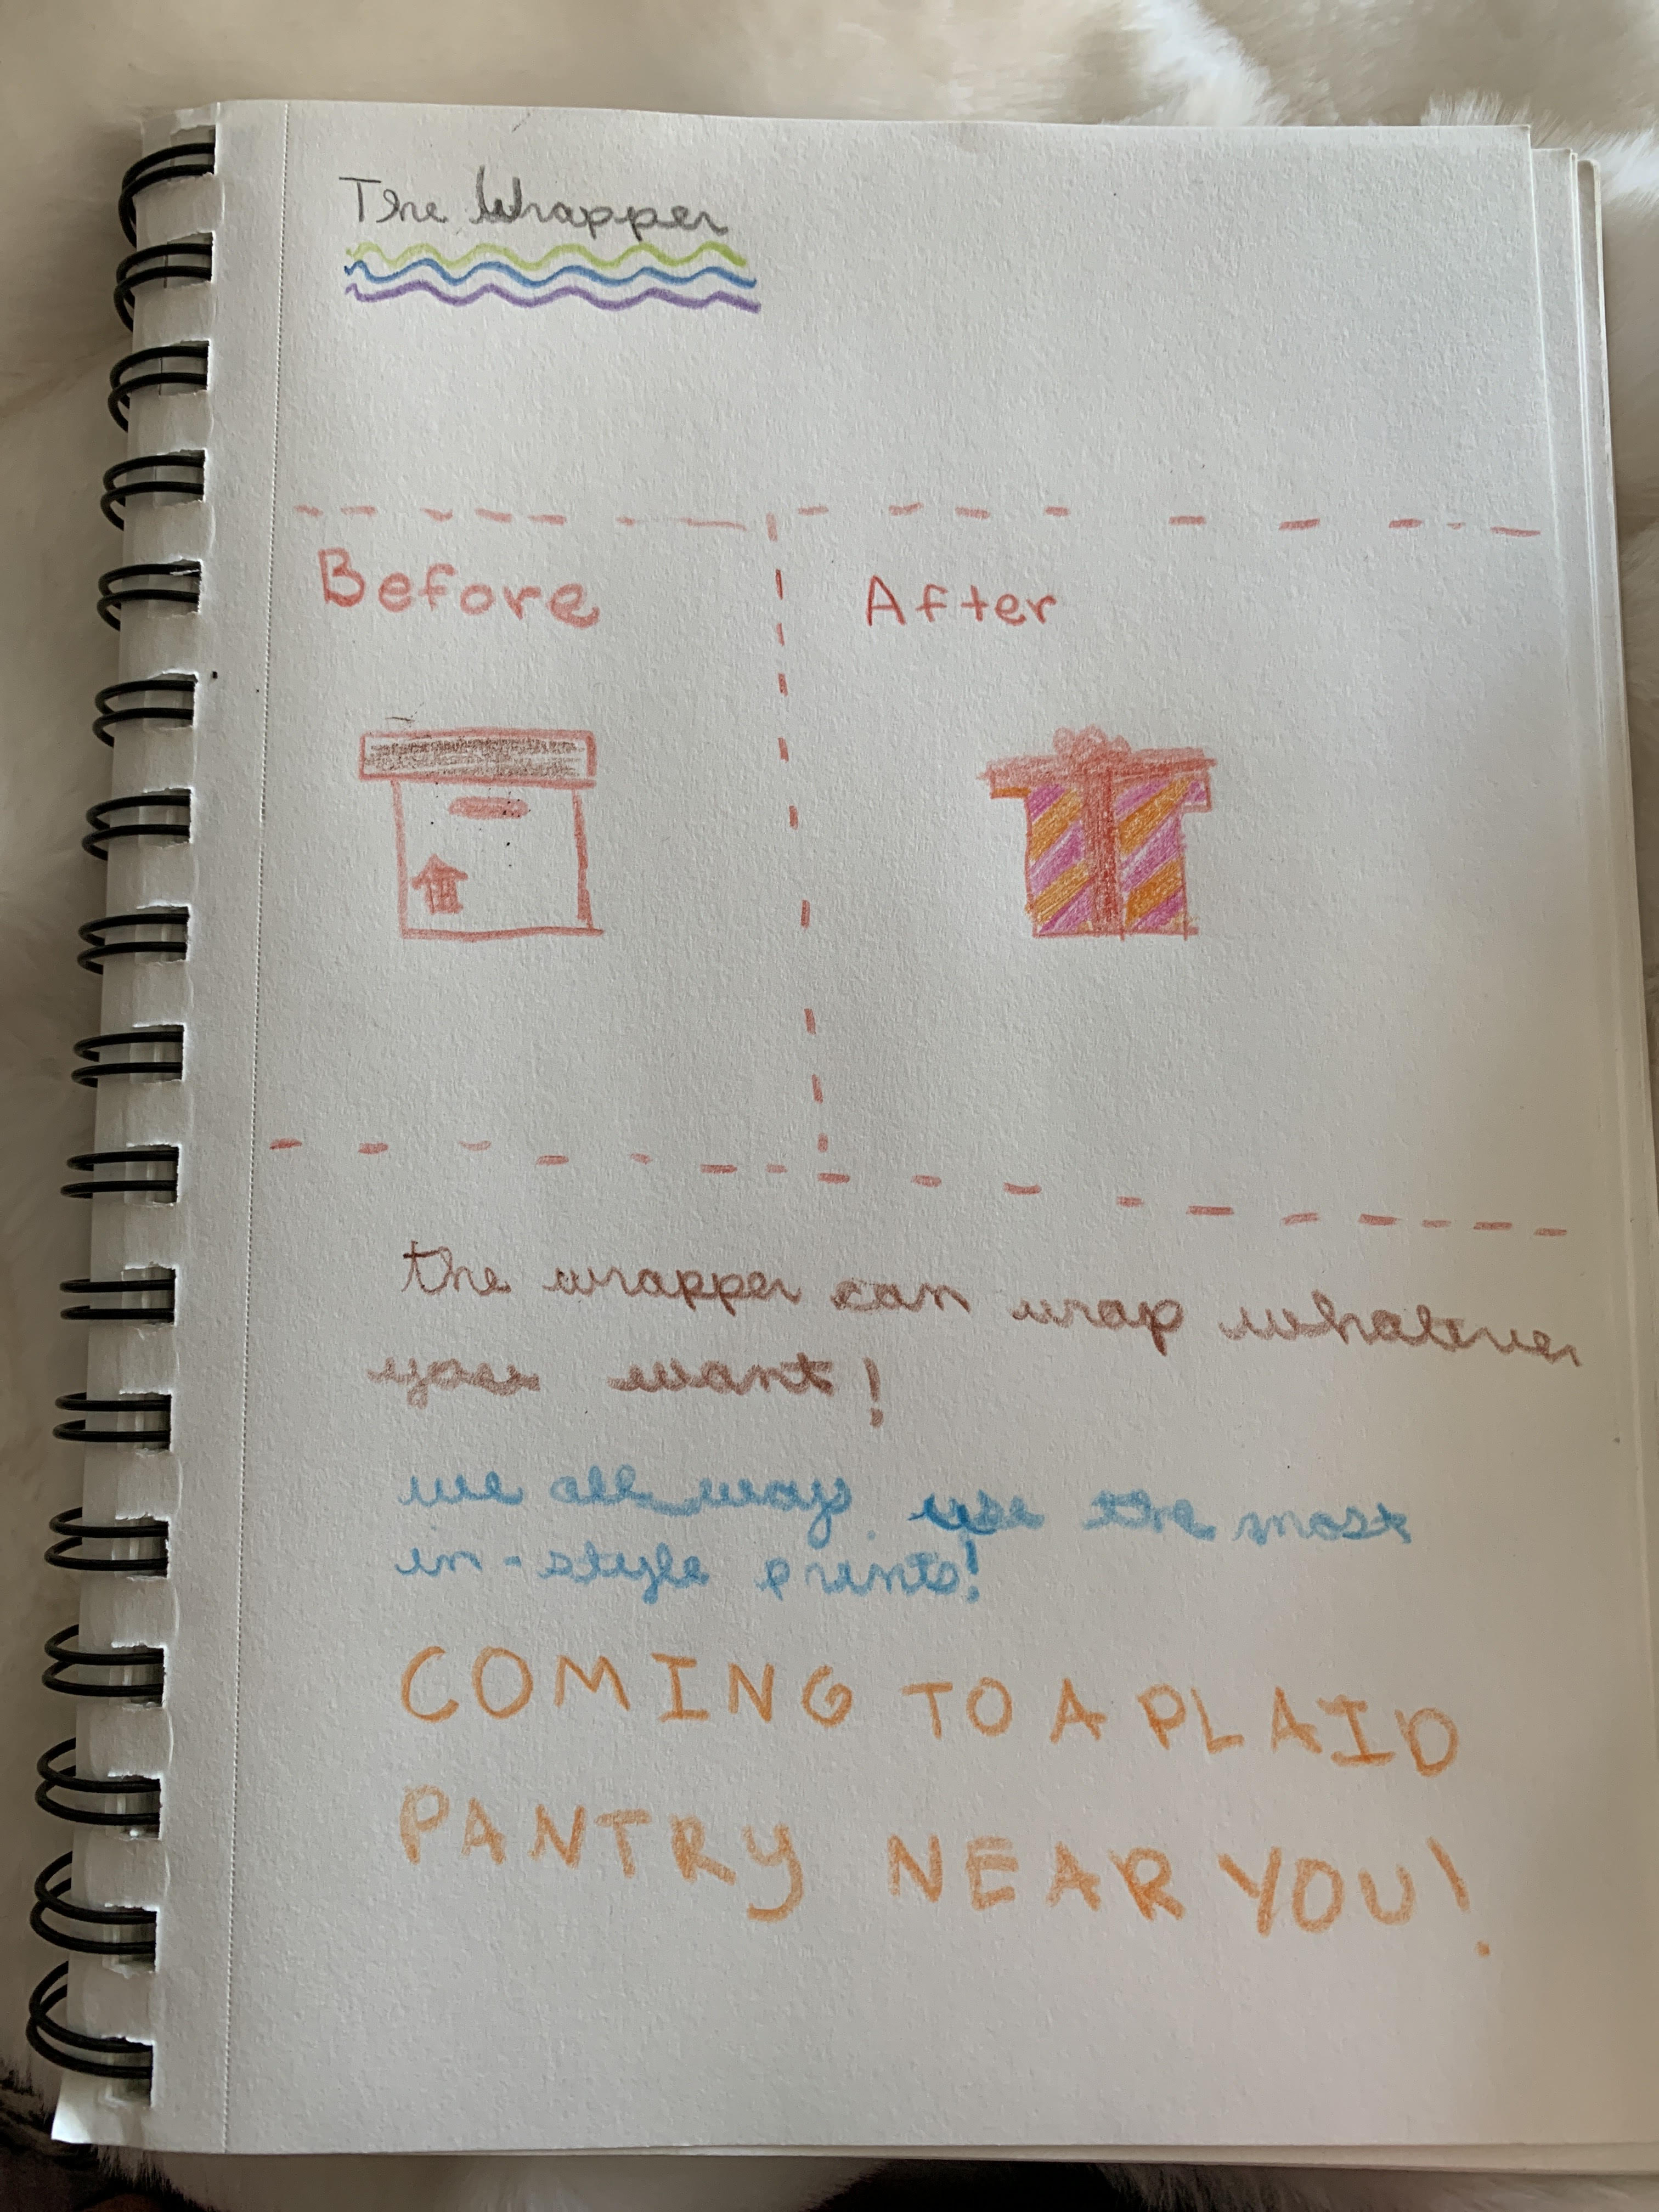 The Wrapper
Before
After
the wrapper can wrap whatever
you want!
we all ways use the most
in-style prints!
COMING TO A PLAID
PANTRY NEAR YOU!